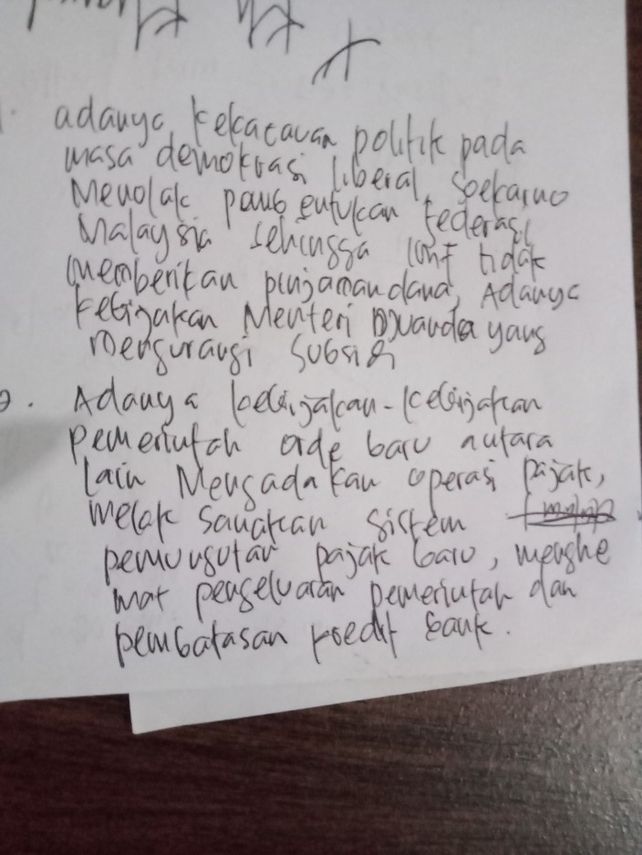 1. adanya kekacauan politik pada
masa demokrasi liberal, Soekarno
Menolak pembentukan Federasi
Malaysia sehingga IMF tidak
memberikan pinjaman dana, Adanya
kebijakan Menteri Djuanda yang
mengurangi Subsidi
2. Adanya kebijakan-kebijakan
pemerintah orde baru antara
lain Mengadakan operasi pajak,
melaksanakan sistem
pemungutan pajak baru, menghe
mat pengeluaran pemerintah dan
pembatasan kredit bank.